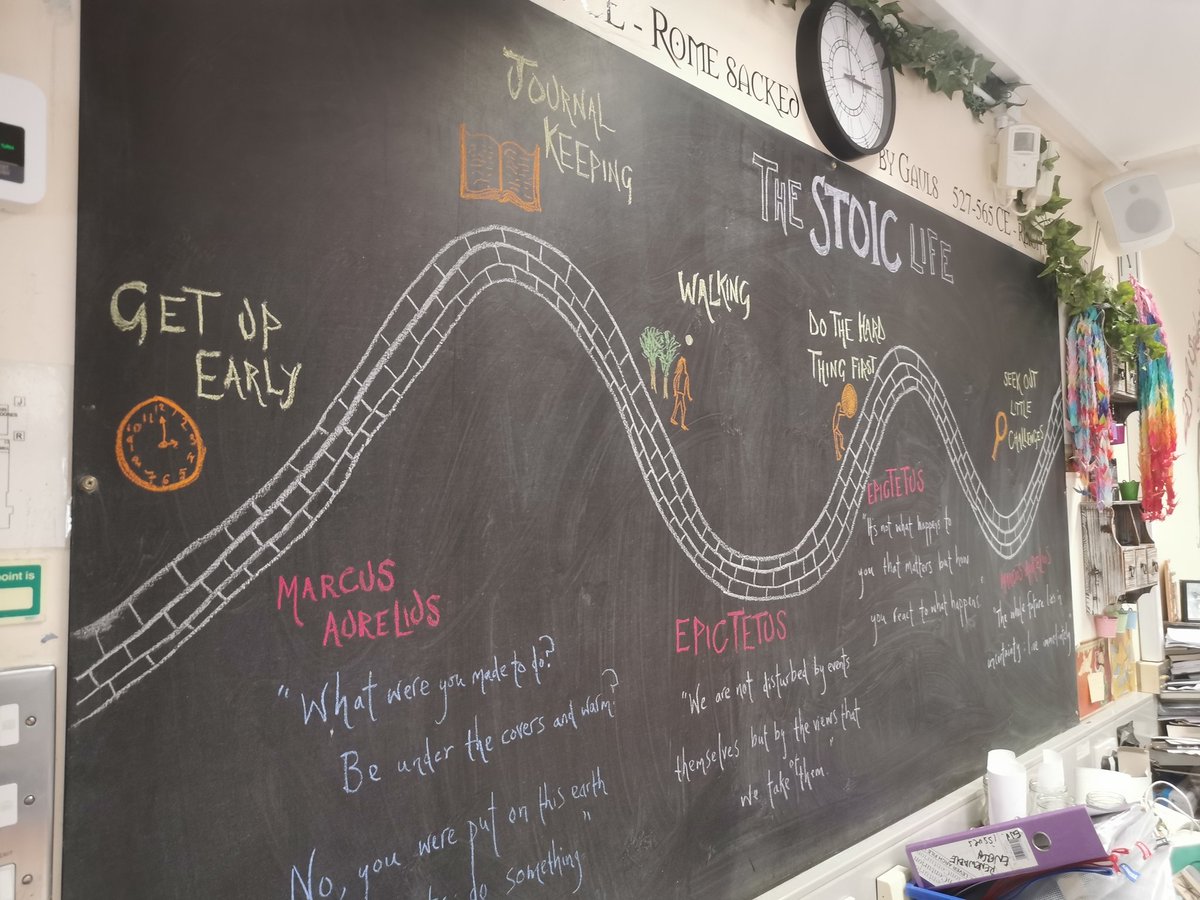 CE - ROME SACKED
BY GAULS 527-565 CE -
THE STOIC LIFE
JOURNAL
KEEPING
GET UP
EARLY
WALKING
DO THE HARD
THING FIRST
SEEK OUT
LITTLE
CHALLENGES
MARCUS
AURELIUS
"What were you made to do?
Be under the covers and warm?
No, you were put on this earth
do something"
EPICTETUS
"We are not disturbed by events
themselves but by the views that
we take of them."
EPICTETUS
"It's not what happens to
you that matters but how
you react to what happens."
MARCUS AURELIUS
"The whole future lies in
uncertainty: live immediately
point is
RENEWABLE
ENERGY
ISSUES